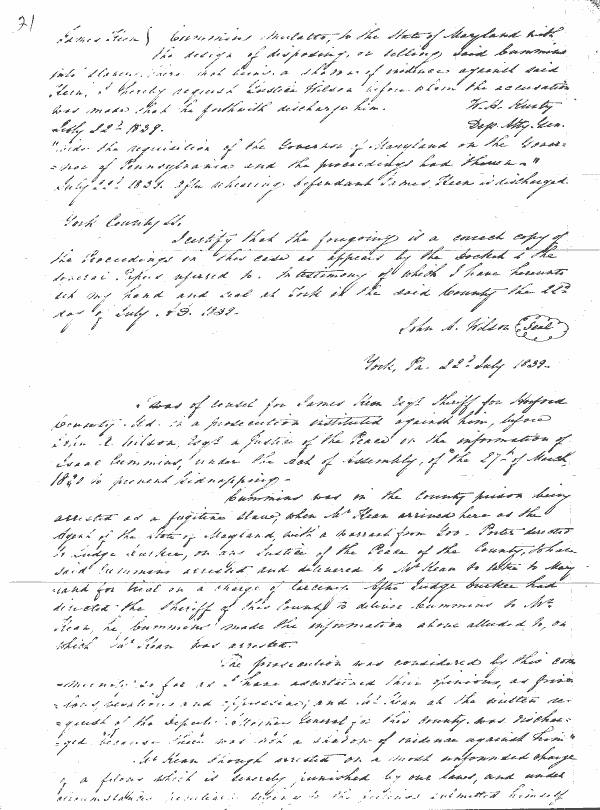 21
James Keen } Cummins Mulatto, to the State of Maryland with
the design of disposing, or selling, said Cummins
into slavery, there not being a shadow of evidence against said
Keen, I hereby request Justice Wilson before whom the accusation
was made that he forthwith discharge him.
July 22d 1839. Dep. Atty. Gen.
"Vide the requisition of the Governor of Maryland on the Gover-
=nor of Pennsylvania and the proceedings had thereon"
July 22d 1839. After hearing defendant James Keen is discharged.
York County Ss.
I certify that the foregoing is a correct copy of
the Proceedings in this case as appears by the Docket & the
several Papers referred to. In testimony of which I have hereunto
set my hand and seal at York in the said County the 22d
day of July A.D. 1839.
John A. Wilson Seal
York, Pa. 22d July 1839.
I was of counsel for James Keen Esqr. Sheriff for Harford
County Md. in a prosecution instituted against him, before
John A. Wilson, Esqr. a Justice of the Peace on the information of
Isaac Cummins, under the Act of Assembly, of the 27th of March
1820 to prevent kidnapping.
Cummins was in the County prison being
arrested as a fugitive slave, when Mr. Kean arrived here as the
Agent of the State of Maryland, with a warrant from Gov. Porter directed
to Judge Durkee, or any Justice of the Peace of the County, to have
said Cummins arrested and delivered to Mr. Kean to take to Mary-
land for trial on a charge of larceny. After Judge Durkee had
directed the Sheriff of this County to deliver Cummins to Mr.
Kean, he Cummins made the information above alluded to, on
which Mr. Kean was arrested.
The prosecution was considered by this com
=munity so far as I have ascertained their opinions, as frivo
=lous, vexatious and oppressive; and Mr. Kean at the written re-
=quest of the Deputy Attorney General for this County, was dischar-
=ged because there was not a shadow of evidence against him"
Mr. Kean though arrested on a most unfounded charge
of a felony which is severely punished by our laws, and under
circumstances peculiarly to the submitted himself